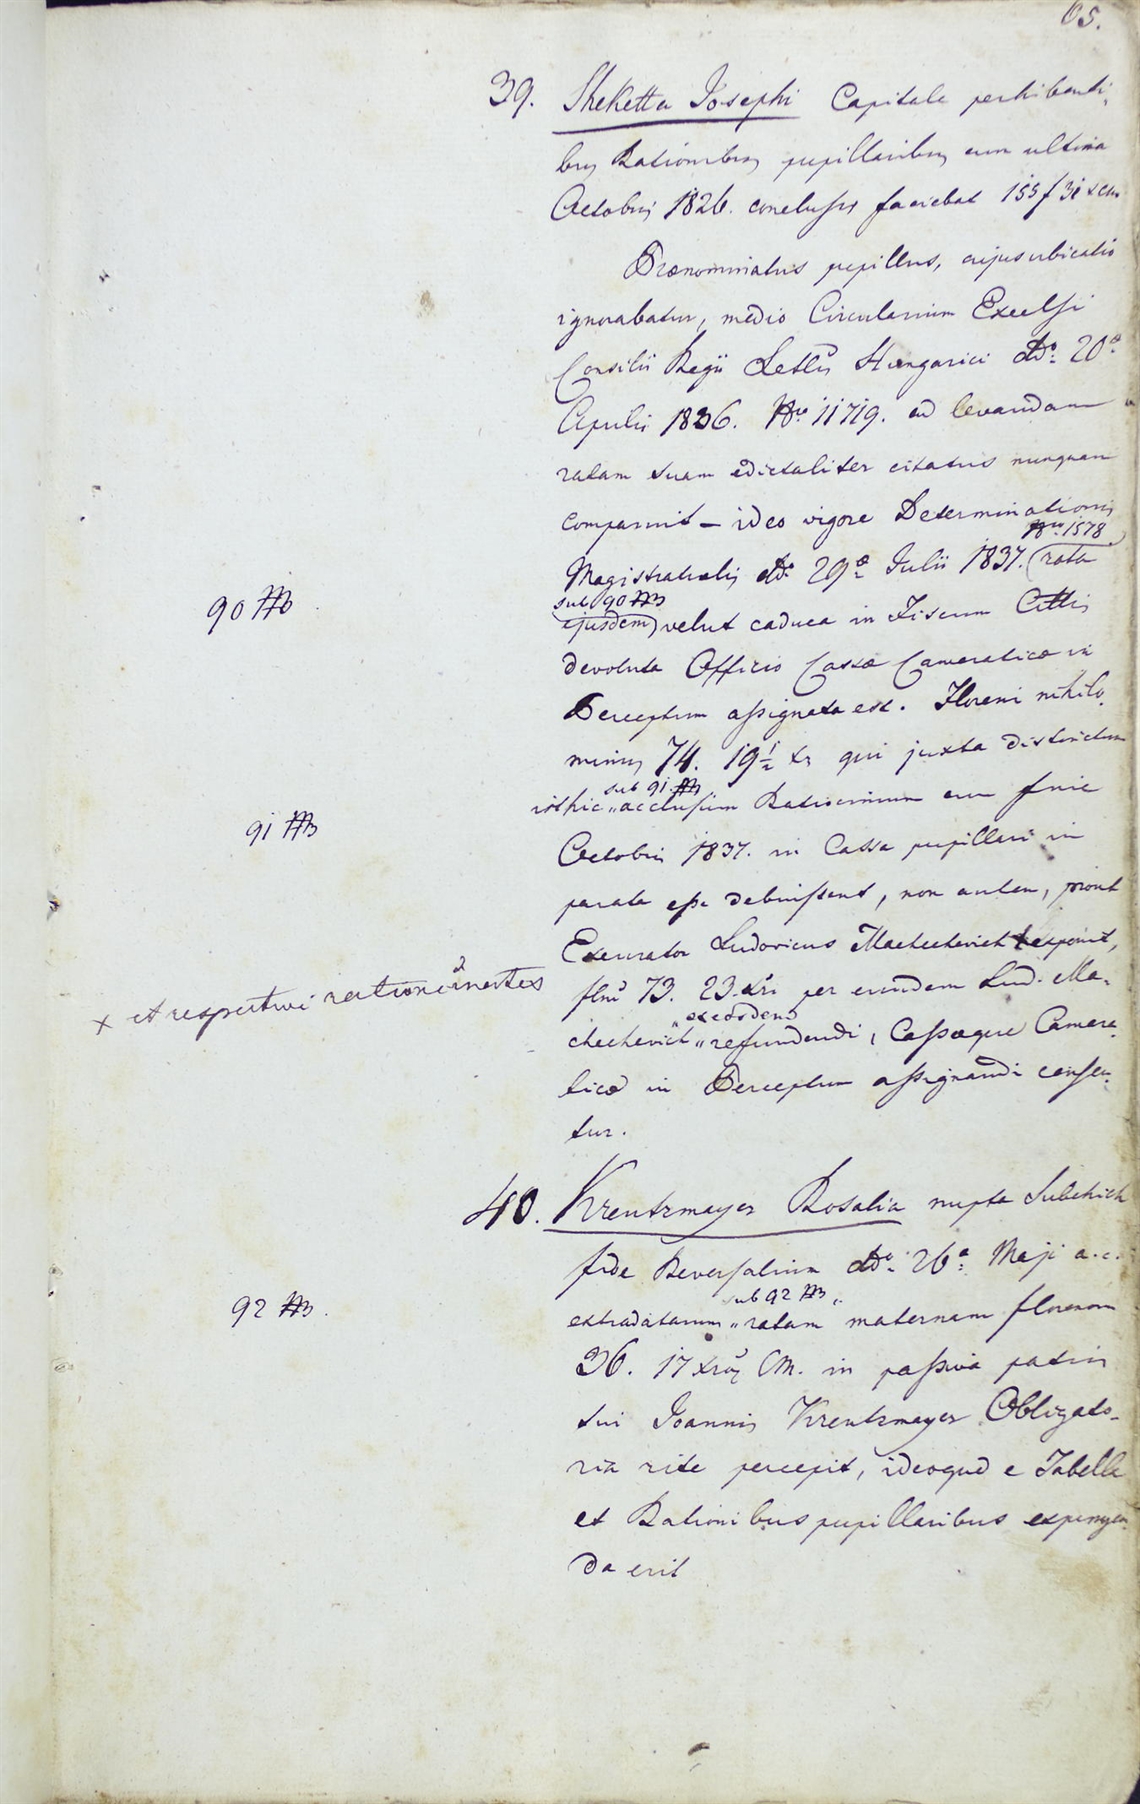 65.
39. Sheketta Josephi Capitale perhibenti-
bus Rationibus pupillaribus cum ultima
Octobris 1826. conclusis faciebat 155 f 31 xcum
Praenominatus pupillus, cujus ubicatio
ignorabatur, medio Circularium Excelsi
Consilii Regii Lttlis Hungarici ddo. 20a
Aprilis 1836. Nro 11719. ad levandam
ratam suam edictaliter citatus nunquam
comparuit – ideo vigore Determinationis
Nro. 1578
Magistratualis ddo. 29a Julii 1837. (rata
90 sub 90
ejusdem) velut caduca in Fiscum Cittis
devoluta Officio Cassae Cameraticae in
Perceptum assignata est. Floreni nihilo-
minus 74. 19 1/2 xr qui juxta districtum
91 sub 91
isthic „acclusum Ratiocinium cum fine
Octobris 1837. in Cassa pupillari in
parata esse debuissent, non autem, prout
Excurator Ludovicus exponit,
x et respective rationcinantes
flni 73. 23. xri per eundem Lud. Ma-
„ex eosdem
chechevich „refundendi, Cassaeque Camera-
ticae in Perceptum assignandi censen-
tur.
40. Kreutzmayer Rosalia nupta Subchich
fide Reversalium ddo. 26a. Maji a. c.
92 sub 92
extradatarum „ratam maternam florenorum
36. 17 xrorum CM. in passiva patris
sui Joannis Kreutzmayer Obligato-
ria rite percepit, ideoque e Tabella
et Rationibus pupillaribus expungen-
da erit